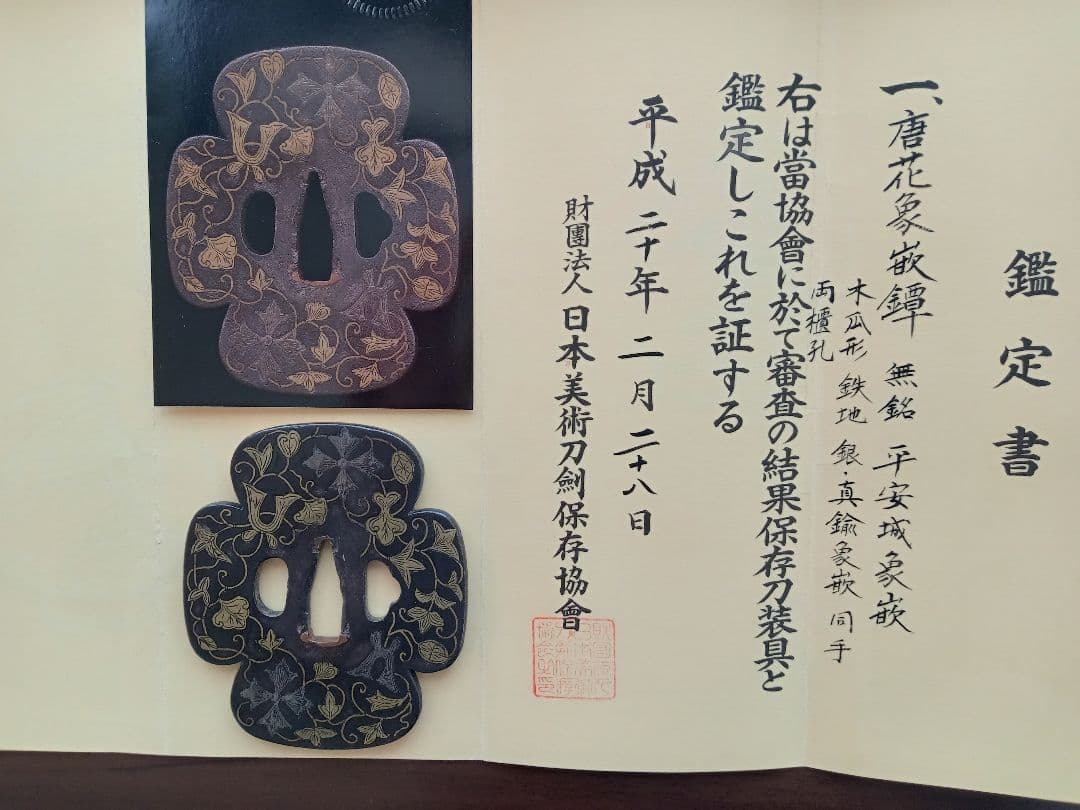 鑑定書
一、唐花象嵌鐔 無銘 平安城象嵌
木瓜形 鉄地 銀・真鍮象嵌 同手
両櫃孔
右は當協會に於て審査の結果保存刀装具と
鑑定しこれを証する
平成二十年二月二十八日
財團法人日本美術刀劍保存協會